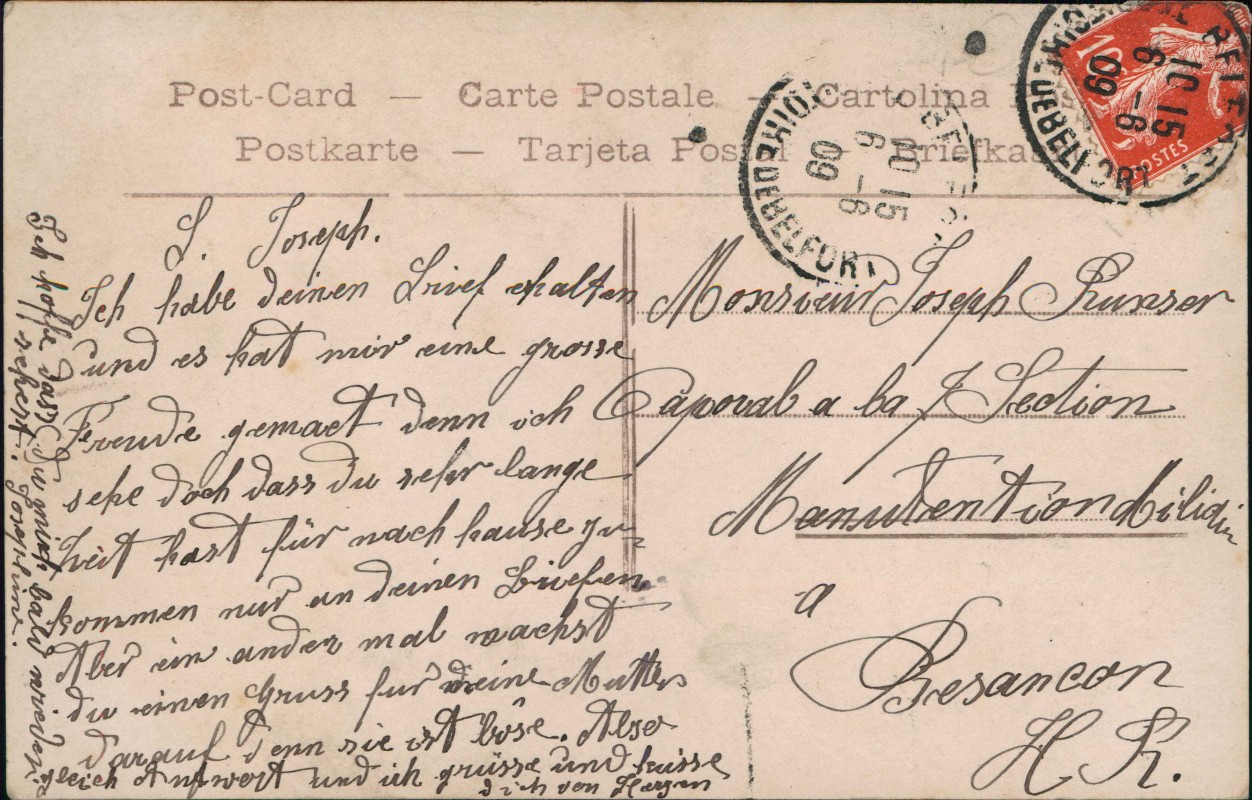 Post-Card — Carte Postale — Cartolina
Postkarte — Tarjeta Postal Briefka
10 15
6 - 6
09
TRE DE BELFORT
10 15
6 - 6
09
TRE DE BELFORT
10
POSTES
L. Joseph.
Ich habe deinen Brief erhalten
und es hat mir eine grosse
Freude gemact denn ich
sehe doch dass du sehr lange
Zeit hast für nach hause zu-
kommen nur an deinen Briefen
Aber ein ander mal machst
du einen Gruss für meine Mutter
darauf denn sie ist böse. Also
gleich Antwort und ich grüsse und küsse
dich von Herzen
Ich hoffe dass Du mich bald wieder
Josephine.
Monsieur Joseph Runser
Caporal a la 7 Section
Manutention
a
Besancon
H R.